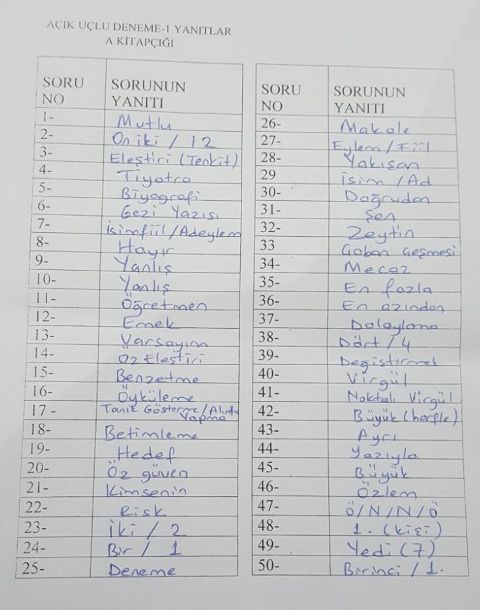 AÇIK UÇLU DENEME-1 YANITLAR
A KİTAPÇIĞI
SORU NO SORUNUN YANITI
1- Mutlu
2- On iki / 12
3- Eleştiri (Tenkit)
4- Tiyatro
5- Biyografi
6- Gezi Yazısı
7- İsimfiil / Adeylem
8- Hayır
9- Yanlış
10- Yanlış
11- Öğretmen
12- Emek
13- Varsayım
14- Öz Eleştiri
15- Benzetme
16- Öyküleme
17- Tanık Gösterme / Alıntı Yapma
18- Betimleme
19- Hedef
20- Öz güven
21- Kimsenin
22- Risk
23- İki / 2
24- Bir / 1
25- Deneme
SORU NO SORUNUN YANITI
26- Makale
27- Eylem / Fiil
28- Yakışan
29 İsim / Ad
30- Doğrudan
31- Şen
32- Zeytin
33 Çoban Çeşmesi
34- Mecaz
35- En fazla
36- En azından
37- Dolaylama
38- Dört / 4
39- Değiştirmek
40- Virgül
41- Noktalı Virgül
42- Büyük (harfle)
43- Ayrı
44- Yazıyla
45- Büyük
46- Özlem
47- Ö/N/N/Ö
48- 1. (kişi)
49- Yedi (7)
50- Birinci / 1.